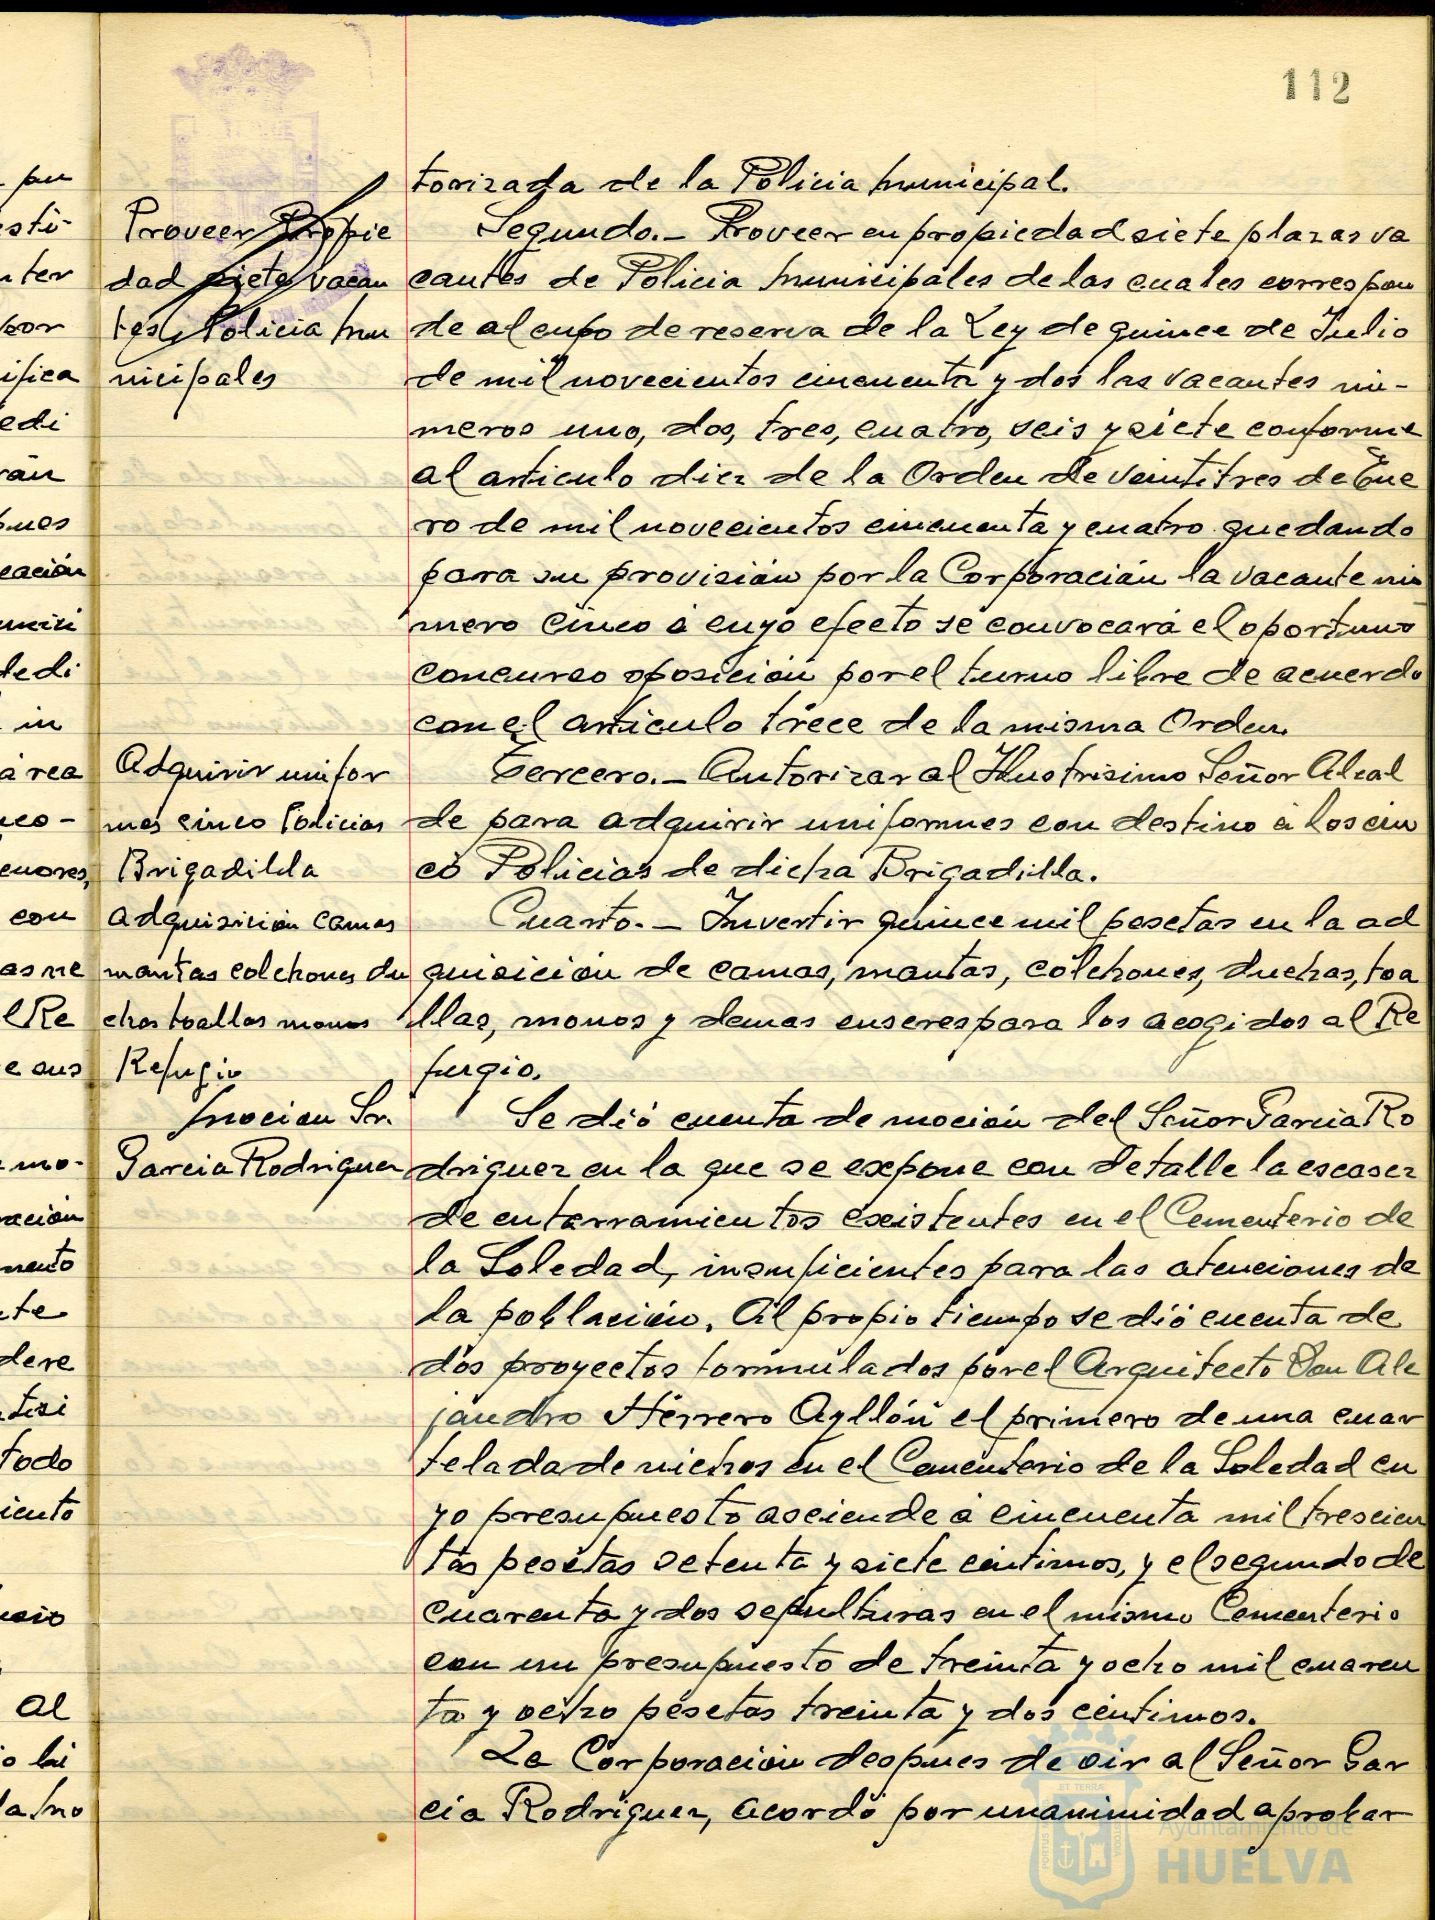 112
torizada de la Policia Municipal.
Proveer Propie
dad siete vacan
tes Policia Mu
nicipales
Segundo.- Proveer en propiedad siete plazas va
cantes de Policia Municipales de las cuales correspon
de al cupo de reserva de la Ley de quince de Julio
de mil novecientos cincuenta y dos las vacantes nu-
meros uno, dos, tres, cuatro, seis y siete conforme
al articulo diez de la Orden de veintitres de Ene
ro de mil novecientos cincuenta y cuatro quedando
para su provisión por la Corporación la vacante nú
mero cinco á cuyo efecto se convocará el oportuno
concurso oposición por el turno libre de acuerdo
con el articulo trece de la misma Orden.
Adquirir unifor
mes cinco Policias
Brigadilla
Tercero.- Autorizar al Ilustrisimo Señor Alcal
de para adquirir uniformes con destino á los cin
co Policias de dicha Brigadilla.
adquisición camas
mantas colchones du
chas toallas monos
Refugio
Cuarto.- Invertir quince mil pesetas en la ad
quisición de camas, mantas, colchones, duchas, toa
llas, monos y demas enseres para los acogidos al Re
fugio.
Mocion Sr.
Garcia Rodriguez
Se dió cuenta de moción del Señor Garcia Ro
driguez en la que se expone con detalle la escasez
de enterramientos existentes en el Cementerio de
la Soledad, insuficientes para las atenciones de
la población. Al propio tiempo se dió cuenta de
dos proyectos formulados por el Arquitecto Don Ale
jandro Herrero Ayllón el primero de una cuar
telada de nichos en el Cementerio de la Soledad cu
yo presupuesto asciende á cincuenta mil trescien
tas pesetas setenta y siete céntimos, y el segundo de
cuarenta y dos sepulturas en el mismo Cementerio
con un presupuesto de treinta y ocho mil cuaren
ta y ocho pesetas treinta y dos céntimos.
La Corporación despues de oir al Señor Gar
cia Rodriguez, acordó por unanimidad aprobar
Ayuntamiento de
HUELVA